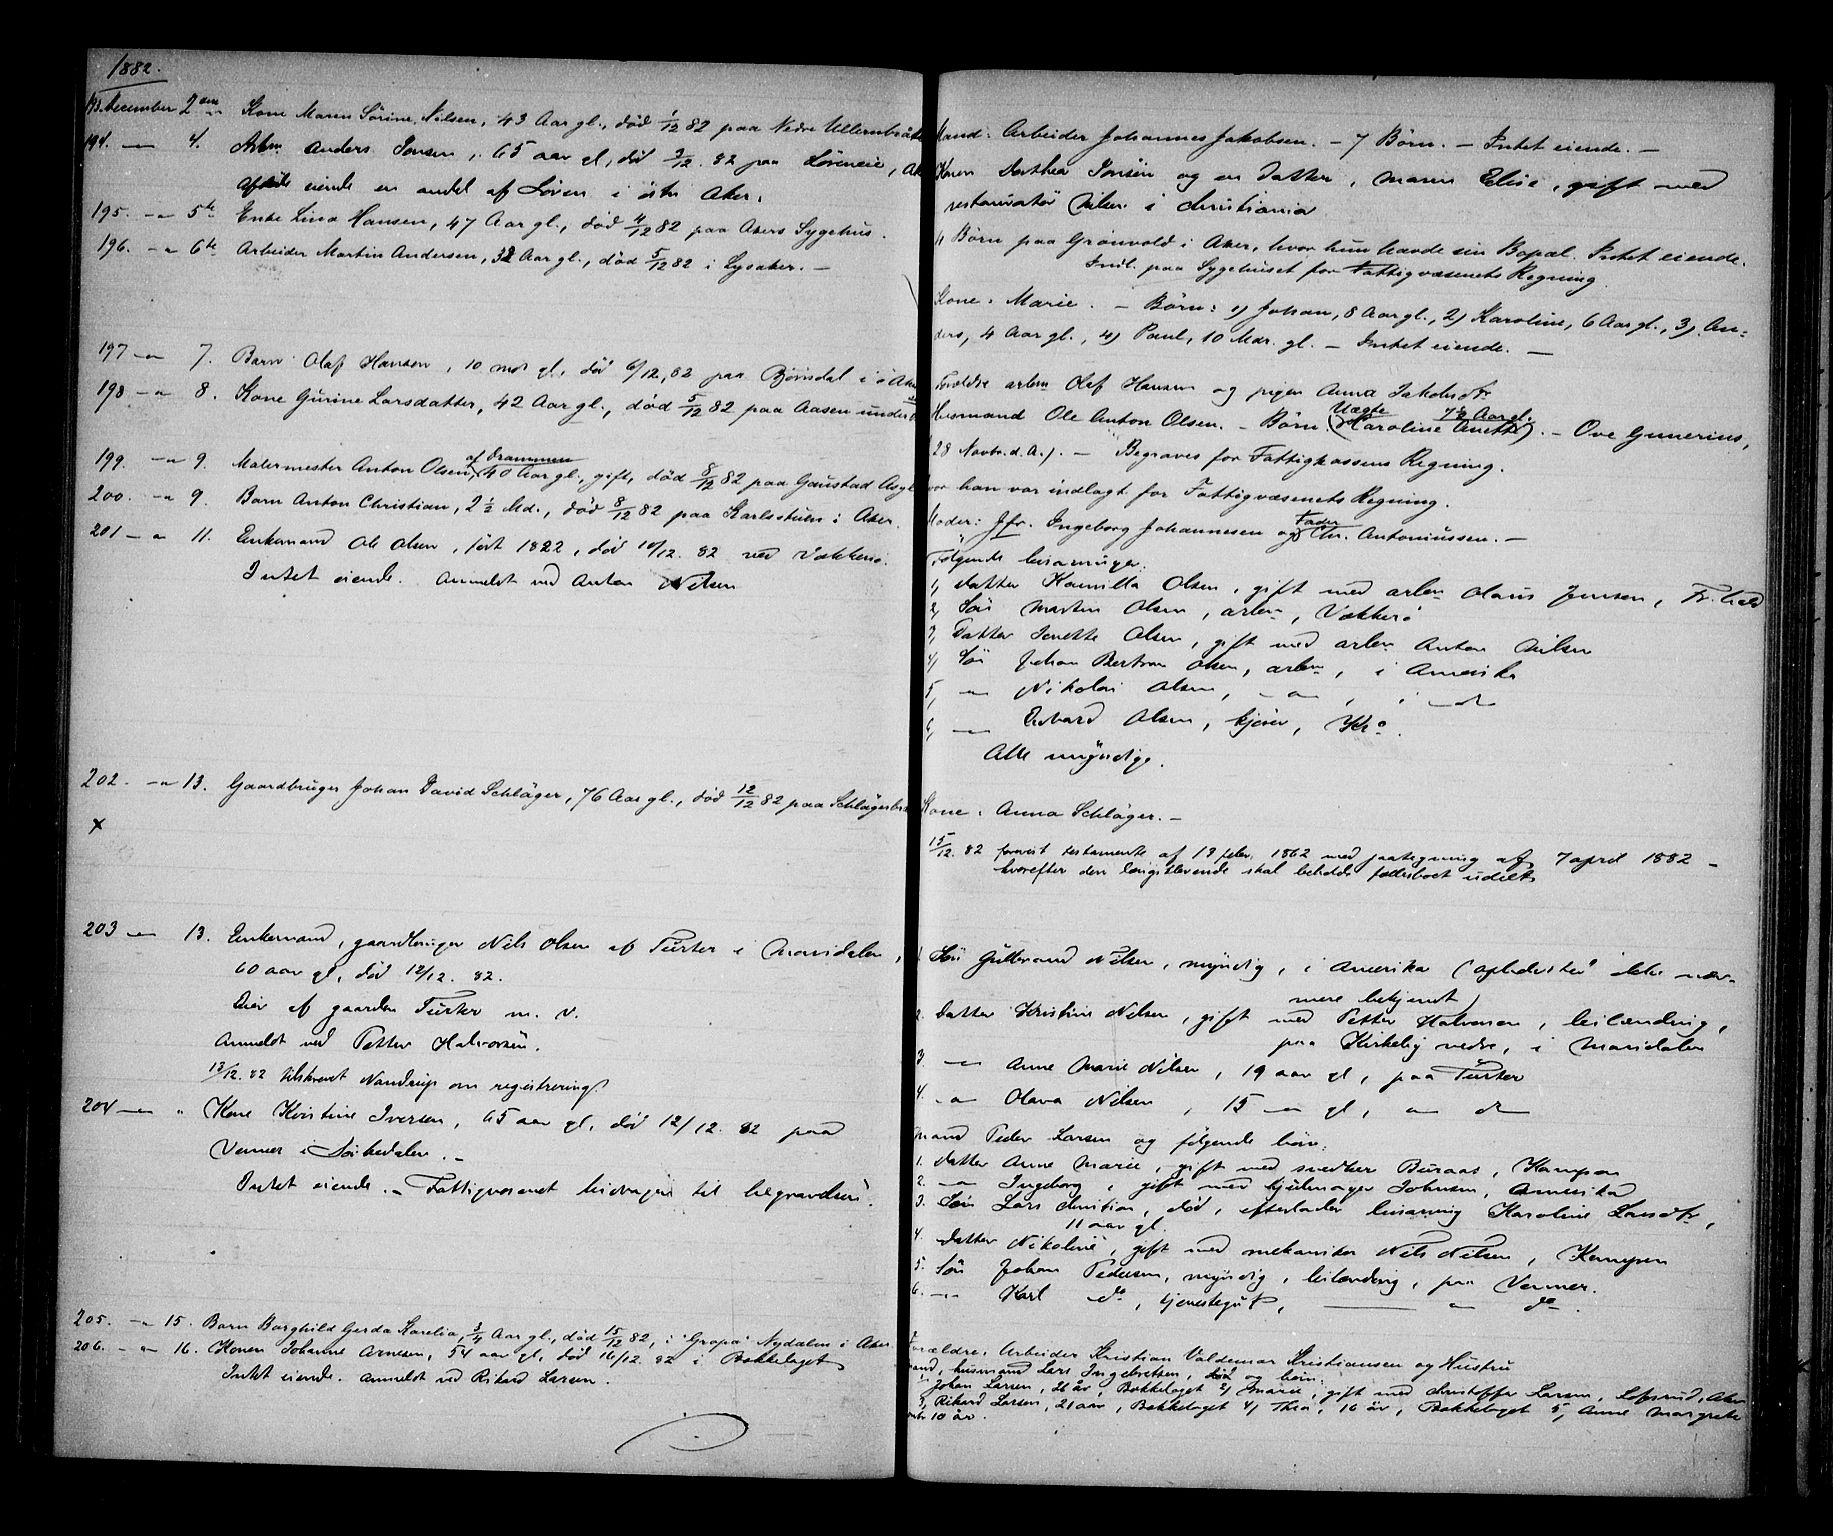 1882.
193. December 2den Kone Maren Sörine Nilsen, 43 Aar gl., död 1/12 82 paa Nedre Ullernbråten
194. — 4. Arbm. Anders Jonsen, 65 aar gl, död 3/12. 82 paa Löreneie, Aker
eiende en andel af Lören i östre Aker.
195. — " 5te Enke Lina Hansen, 47 Aar gl., död 4/12 82 paa Akers Sygehus.
196. — " 6te Arbeider Martin Andersen, 32 Aar gl., död 5/12 82 i Lysaker. —
197 — " 7. Barn Olaf Hansen, 10 mdr gl, död 6/12, 82 paa Björnsdal i ö Aker
198 — " 8. Kone Gurine Larsdatter, 42 Aar gl., död 5/12 82 paa Aasen under
af Drammen
199. — " 9. Malermester Anton Olsen, 40 Aar gl., gift, död 8/12 82 paa Gaustad Asyl
200. — " 9. Barn Anton Christian, 2 1/2 Md., död 8/12 82 paa Karlsstuen i Aker.
201 — " 11. Enkemand Ole Olsen, född 1822, död 10/12. 82 ved Vækkerö.
Intet eiende. Anmeldt ved Anton Nilsen
202. — " 13. Gaardbruger Johan David Schläger, 76 Aar gl., död 12/12 82 paa Schlägerbraaten
x
203 — 13. Enkemand, gaardbruger Nils Olsen af Turter i Maridalen,
60 aar gl, död 12/12. 82.
Eier af gaarden Turter m. v.
Anmeldt ved Petter Halvorsen.
13/12. 82 tilskrevet Nandrup om registrering.
204 — " Kone Kristine Iversen, 65 aar gl, död 12/12. 82 paa
Venner i Sörkedalen. —
Intet eiende. — Fattigvæsenet bidrager til begravelsen.
205. — " 15. Barn Borghild Gerda Karelia, 3/4 Aar gl., död 15/12 82, i "Gropa" Nydalen i Aker.
206. — " 16. Konen Johanne Arnesen, 54 aar gl, död 16/12. 82 i Bakkelaget
Intet eiende. Anmeldt ved Rikard Larsen.
Mand: Arbeider Johannes Jakobsen. — 7 Börn. — Intet eiende. —
Konen Dorthea Jonsen og en datter, Maren Elise, gift med
restauratör Nilsen i Christiania
4 Börn paa Grönvold i Aker, hvor hun havde sin Bopæl. Intet eiende.
Indl. paa Sygehuset for Fattigvæsenets Regning.
Kone: Marie. — Börn: 1) Johan, 8 Aar gl., 2) Karoline, 6 Aar gl., 3) An-
ders, 4 Aar gl., 4) Paul, 10 Mdr. gl. — Intet eiende. —
Forældre arbm Olaf Hansen og pigen Anna Jakobsdtr
Husmand Ole Anton Olsen. — Börn: (Uægte Karoline Anette 7 1/2 Aar gl.). — Ove Gunerius,
(28 Novbr. d. A.). — Begraves for Fattigkassens Regning.
hvor han var indlagt for Fattigvæsenets Regning.
Moder: Jfr. Ingeborg Johannesen og Fader Chr. Antoniussen. —
Fölgende livsarvinger:
1, datter Kamilla Olsen, gift med arbm Olaus Jensen, Fr.hald
2, Sön Martin Olsen, arbm, Vækkerö
3, Datter Jonette Olsen, gift med arbm Anton Nilsen
4, Sön Johan Bertran Olsen, arbm, i Amerika
5, — Nikolai Olsen, — " —, i do
6, — Edvard Olsen, kjører, Vkrö.
Alle myndige.
Kone: Anna Schläger. —
15/12. 82 forevist testamente af 18 febr. 1862 med paategning af 7 april 1882 —
hvorefter den længstlevende skal beholde fællesboet udelt
1 Sön Gulbrand Nilsen, myndig, i Amerika (opholdssted ikke nær-
mere bekjendt)
2. Datter Kristine Nilsen, gift med Petter Halvorsen, leilænding,
paa Kirkeby nedre, i Maridalen
3 — Anne Marie Nilsen, 19 aar gl, paa Turter
4. — " Olava Nilsen, 15 — " gl, — " do
Mand Peder Larsen og fölgende börn:
1. datter Anne Marie, gift med snedker Buraas, Kampen
2. — " Ingeborg, gift med hjulmager Johnsen, Amerika
3. Sön Lars Christian, död, efterlader livsarving Karoline Larsdtr,
11 aar gl.
4. datter Nikoline, gift med mekaniker Nils Nilsen, Kampen
5. Sön Johan Pedersen, myndig, leilænding, paa Venner.
6. — " Karl do, tjenestegut, — " do.
Forældre: Arbeider Kristian Valdemar Kristiansen og Hustru
Mand, husmand Lars Ingebretsen, död og börn:
1, Johan Larsen, 26 år, Bakkelaget 2, Marie, gift med Christoffer Larsen, Lofsrud, Aker
3, Rikard Larsen, 21 aar, Bakkelaget 4, Thea, 16 år, Bakkelaget 5, Anne Margrete
10 år.